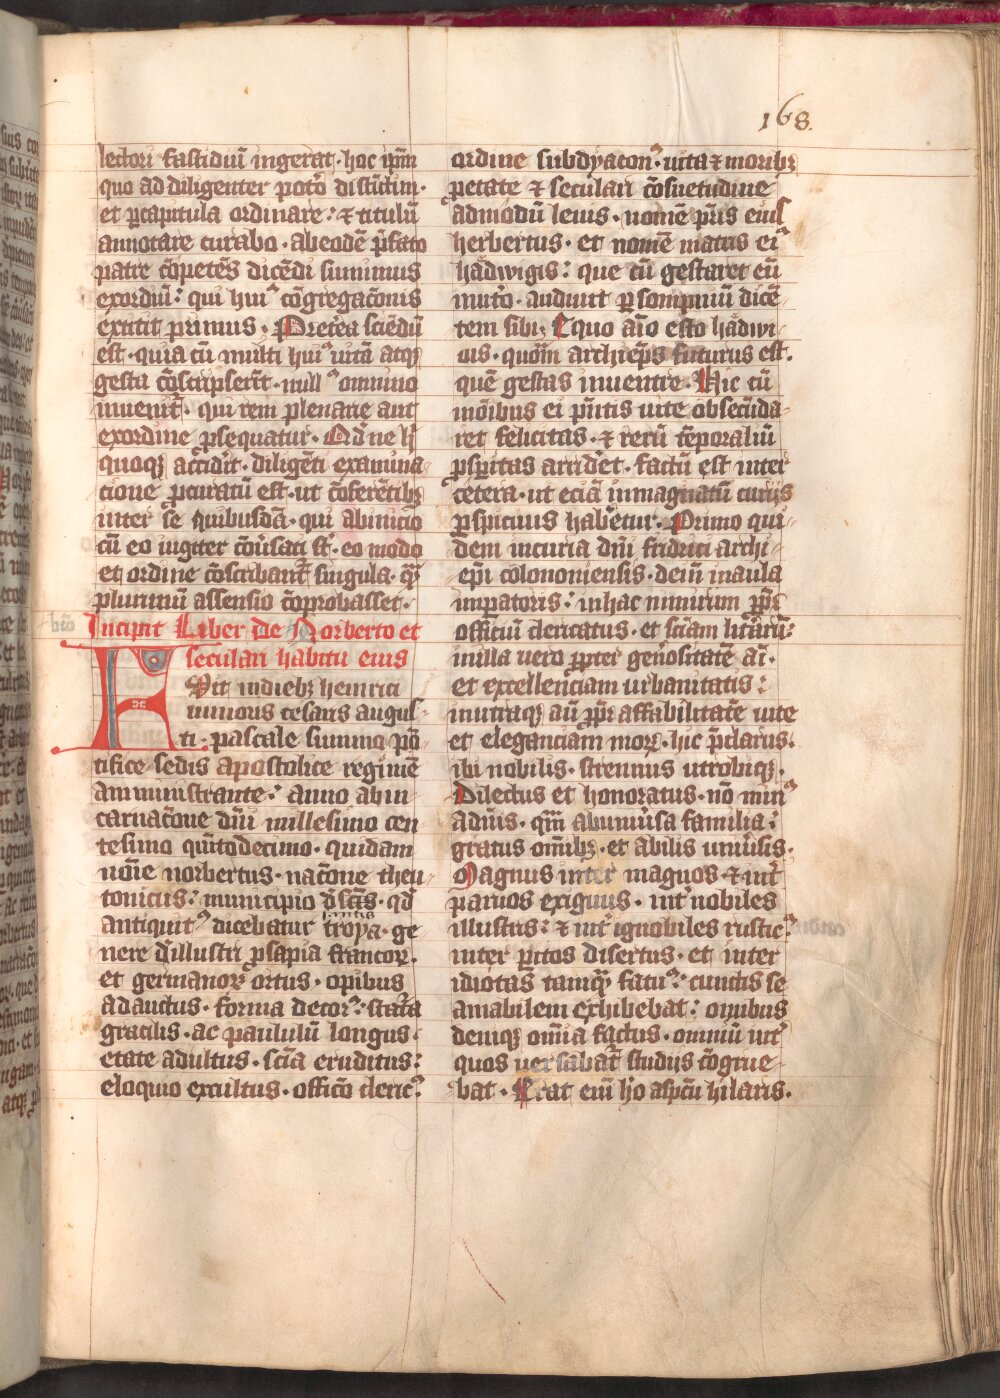 168.
lectori fastidiū ingerat · hoc ip̄m
quo ad diligenter pot̄o distīctim ·
et p̱capitula ordinare : ⁊ titulū
annotare curabo · abeodē p̄fato
patre cōpetēs dicēdi sumimus
exordiū : qui huiꝰ cōgregac̄onis
extitit primus · Pret̄ea sciēdū
est · quia cū multi huiꝰ uitā atqꝫ
gesta cōscripser̄t · nullꝰ omnino
inuenit̄ · qui rem plenarie aut
exordine ꝑsequatur · Ad ne h̄
quoqꝫ acc̄idit · diligēti examina
tione ꝓcuratū est · ut cōferētibꝫ
inter se quibusdā · qui abinicio
cū eo iugiter cōūsati s̄t · eo modo
et ordine cōscribant̄ singula · q̄
plurimū assensio cōprobasset ·
Incipit Liber de Norberto et
seculari habitu eius
FVit indiebꝫ heinrici
iunioris cesaris augus
ti · pascale summo pō
tifice sedis apostolice regimē
amministrante : anno abin
carnac̄one dn̄i millesimo cen
tesimo qu̅todecimo · quidam
noīe norbertus · nac̄one theu
tonicus : municipio d̄ sc̄tis · qd̄
antiquitꝰ dicebatur troya · ge
nere d̄illustri ꝓsapia francoꝝ ·
et germanoꝝ ortus · opibus
adauctus · forma decorꝰ : stat̄a
gracilis · ac paululū longus ·
etate adultus · sc̄ia eruditus :
eloquio excultus · offic̄o clericꝰ :
ordine subdyaconꝰ · uita ⁊ moribꝫ
petate ⁊ seculari cōsuetudine
admodū leuis · nomē pr̄is eius
herbertus · et nomē matris eiꝰ
hadwigis : que cū gestaret eū
inut̄o · audiuit ꝑ sompniū dicē
tem sibi ; Equo aīo esto hadwi
gis · quoīm archiep̄s futurus est ·
quē gestas inuentre · Hic cū
morībus ei pn̄tis uite obsecūda
ret felicitas · ⁊ rerū tēporaliū
ꝓsꝑitas arrid̄et · factū est inter
cetera · ut eciā inmagnatū curijs
ꝑspicuus hab̄etur · Primo qui
dem incuria dn̄i friderici archi
ep̄i coloniensis · dein̄ inaula
imꝑatoris : inhac nimirum ꝓp̄t
officiū clericatus · et sciam litt̄arū :
inilla vero ꝓpter gen̄ositatē ai ·
et excellenciam urbanitatis :
inutraqꝫ aū ꝓp̄t affabilitatē uite
et eleganciam moꝝ · hic p̄clarus ·
ibi nobilis · strenuus utrobiqꝫ ·
Dilectus et honoratus · nō minꝰ
adn̄is · qm̄ abuniūsa familia :
gratus om̄ibꝫ · et abilis uniūsis ·
Magnus inter magnos ⁊ int̄
paruos exiguus · int̄ nobiles
illustris : ⁊ int̄ ignobiles rusticꝰ :
inter p̱itos disertus · et inter
idiotas tamq̄ fatuꝰ : cunctis se
amabilem exhibebat : omnibus
deniqꝫ om̄ia factus · omniū int̄
quos versabat̄ studiis cōgrue
bat · Erat eni̅ h̊o aspectu hilaris ·